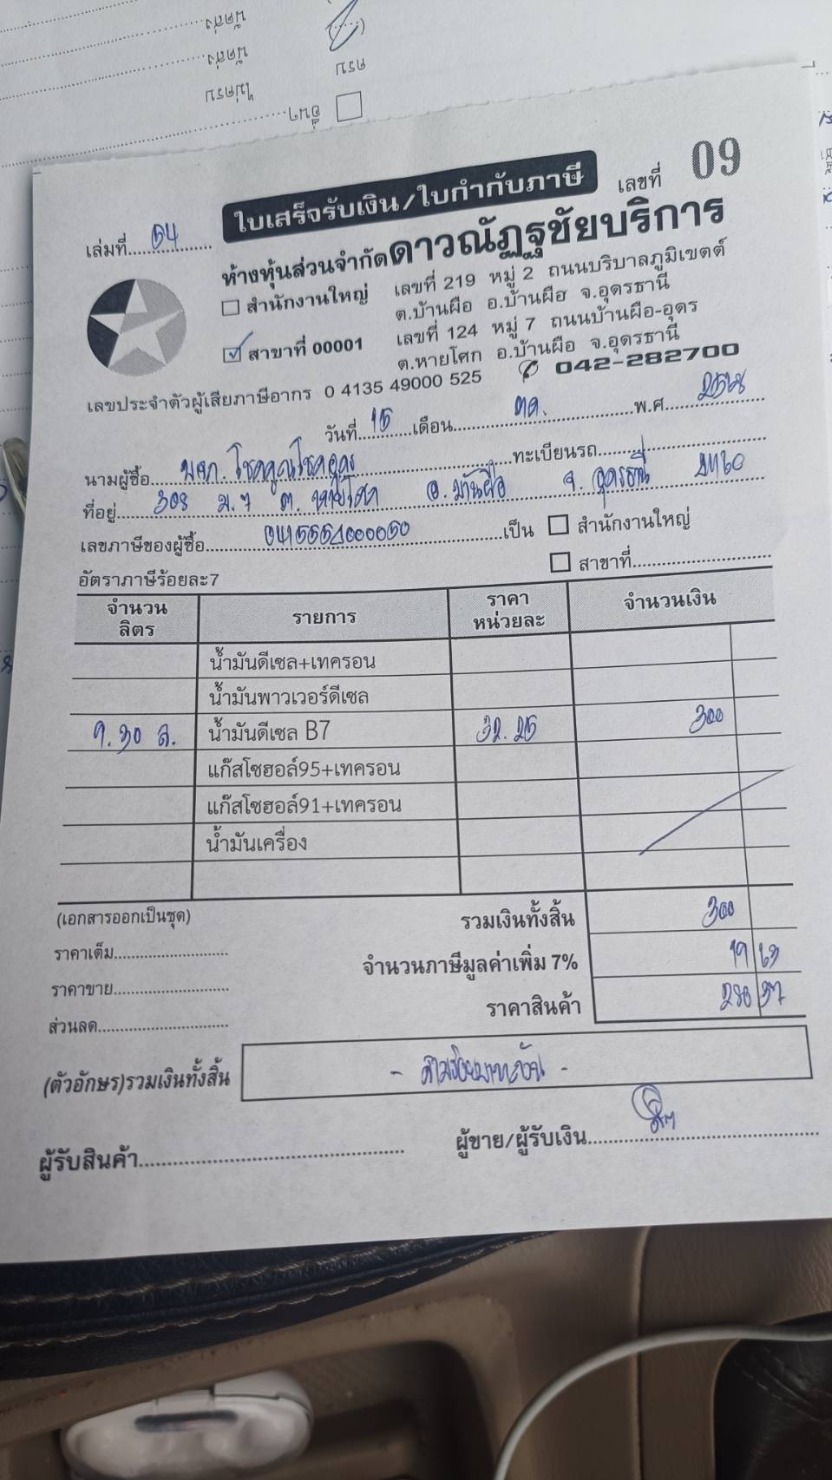 นัดส่ง
นัดส่ง
ไม่ครบ
ครบ
อื่นๆ
ใบเสร็จรับเงิน/ใบกำกับภาษี
เลขที่ 09
เล่มที่ 54
ห้างหุ้นส่วนจำกัดดาวณัฏฐชัยบริการ
สำนักงานใหญ่ เลขที่ 219 หมู่ 2 ถนนบริบาลภูมิเขตต์
ต.บ้านผือ อ.บ้านผือ จ.อุดรธานี
สาขาที่ 00001 เลขที่ 124 หมู่ 7 ถนนบ้านผือ-อุดร
ต.หายโศก อ.บ้านผือ จ.อุดรธานี
เลขประจำตัวผู้เสียภาษีอากร 0 4135 49000 525 042-282700
วันที่ 15 เดือน ตค. พ.ศ.
นามผู้ซื้อ หจก. โชคคูณโชคอุดร ทะเบียนรถ
ที่อยู่ 303 ม.7 ต. หายโศก อ. บ้านผือ จ. อุดรธานี 41160
เลขภาษีของผู้ซื้อ 0415564000050 เป็น สำนักงานใหญ่
สาขาที่
อัตราภาษีร้อยละ7
จำนวน ลิตร รายการ ราคา หน่วยละ จำนวนเงิน
น้ำมันดีเซล+เทครอน
น้ำมันพาวเวอร์ดีเซล
9.30 ล. น้ำมันดีเซล B7 32.25 300
แก๊สโซฮอล์95+เทครอน
แก๊สโซฮอล์91+เทครอน
น้ำมันเครื่อง
(เอกสารออกเป็นชุด) รวมเงินทั้งสิ้น 300
ราคาเต็ม จำนวนภาษีมูลค่าเพิ่ม 7% 19 63
ราคาขาย ราคาสินค้า 280 37
ส่วนลด
(ตัวอักษร)รวมเงินทั้งสิ้น - สามร้อยบาทถ้วน -
ผู้รับสินค้า ผู้ขาย/ผู้รับเงิน